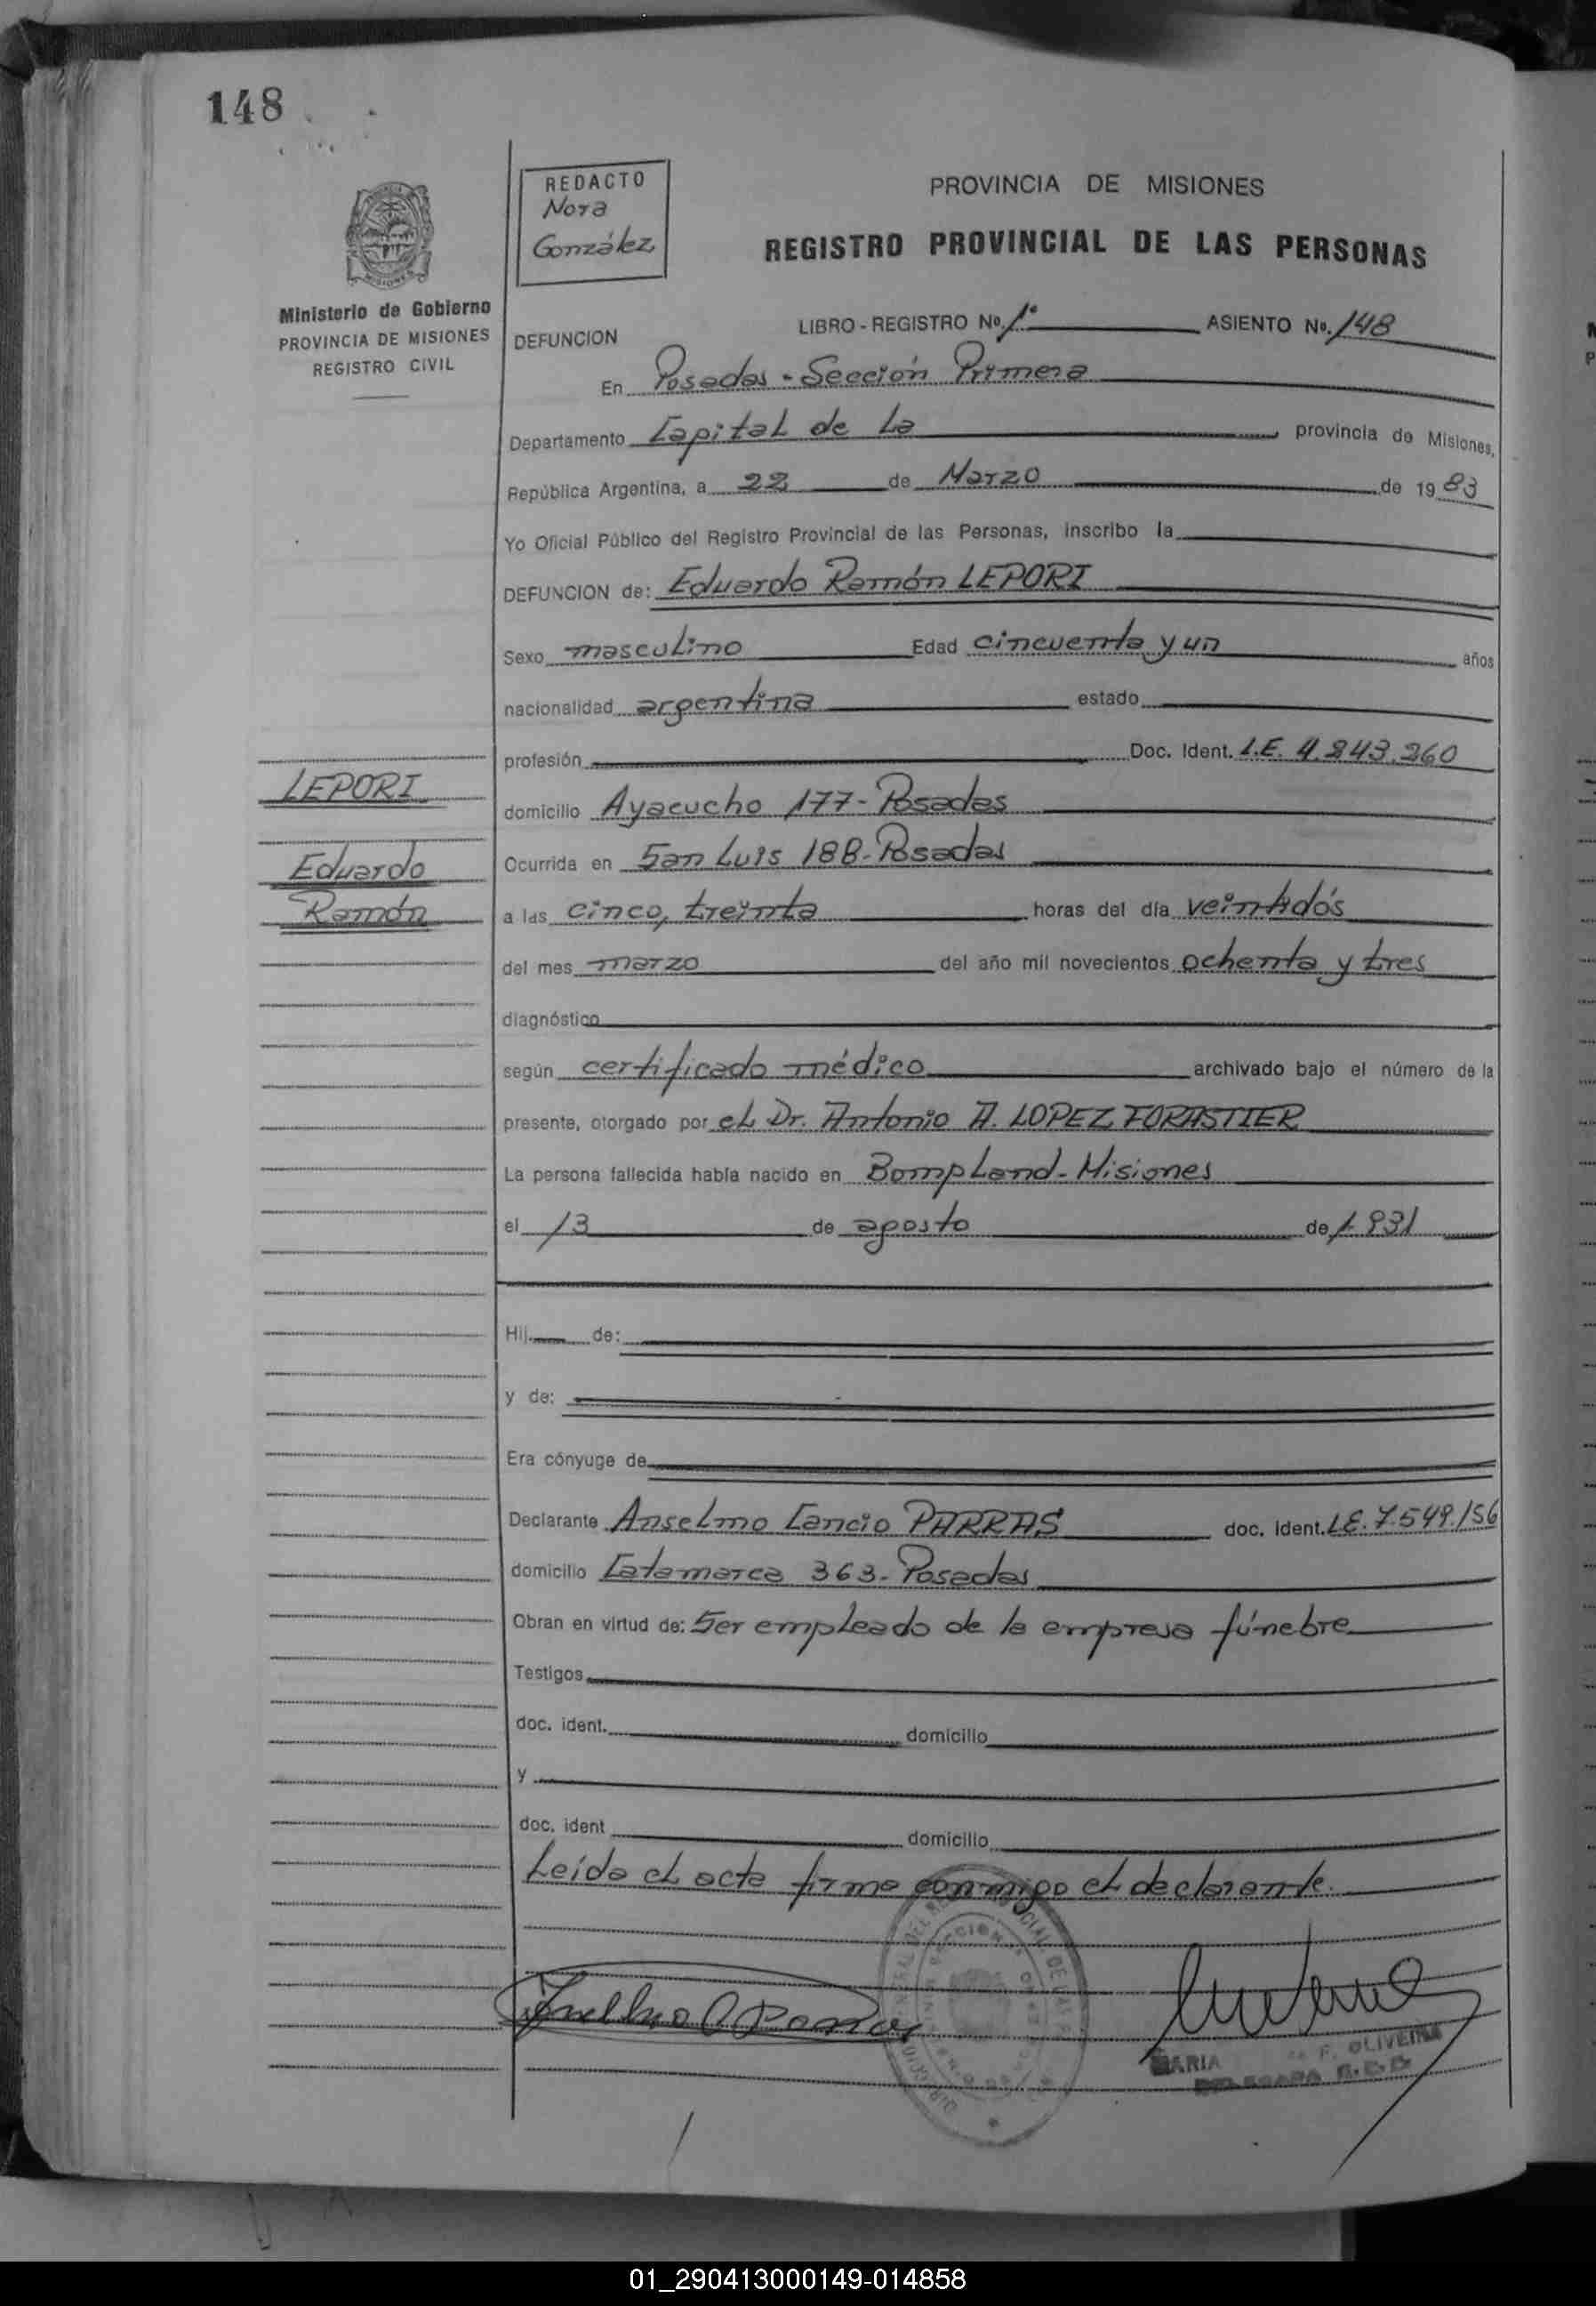 148
REDACTO
Nora
González
PROVINCIA DE MISIONES
REGISTRO PROVINCIAL DE LAS PERSONAS
Ministerio de Gobierno
PROVINCIA DE MISIONES
REGISTRO CIVIL
DEFUNCION LIBRO - REGISTRO Nº. 1º ASIENTO Nº. 148
En Posadas - Sección Primera
Departamento Capital de La provincia de Misiones,
República Argentina, a 22 de Marzo de 1983
Yo Oficial Público del Registro Provincial de las Personas, inscribo la
DEFUNCION de: Eduardo Ramón LEPORI
Sexo masculino Edad cincuenta y un años
nacionalidad argentina estado
profesión Doc. Ident. L.E. 4.243.260
LEPORI
domicilio Ayacucho 177 - Posadas
Eduardo
Ocurrida en San Luis 188 - Posadas
Ramón
a las cinco, treinta horas del día veintidós
del mes marzo del año mil novecientos ochenta y tres
diagnóstico
según certificado médico archivado bajo el número de la
presente, otorgado por eL Dr. Antonio A. LOPEZ FORASTIER
La persona fallecida había nacido en BompLand - Misiones
el 13 de agosto de 1.931
Hij de:
y de:
Era cónyuge de
Declarante Anselmo Cancio PARRAS doc. ident. L.E. 7.549.156
domicilio Catamarca 363 - Posadas
Obran en virtud de: Ser empleado de la empresa fúnebre
Testigos
doc. ident. domicilio
y
doc. ident domicilio
Leída el acta firma conmigo el declarante.
Anselmo C Parras
MARIA F. OLIVEIRA
DELEGADA
01_290413000149-014858